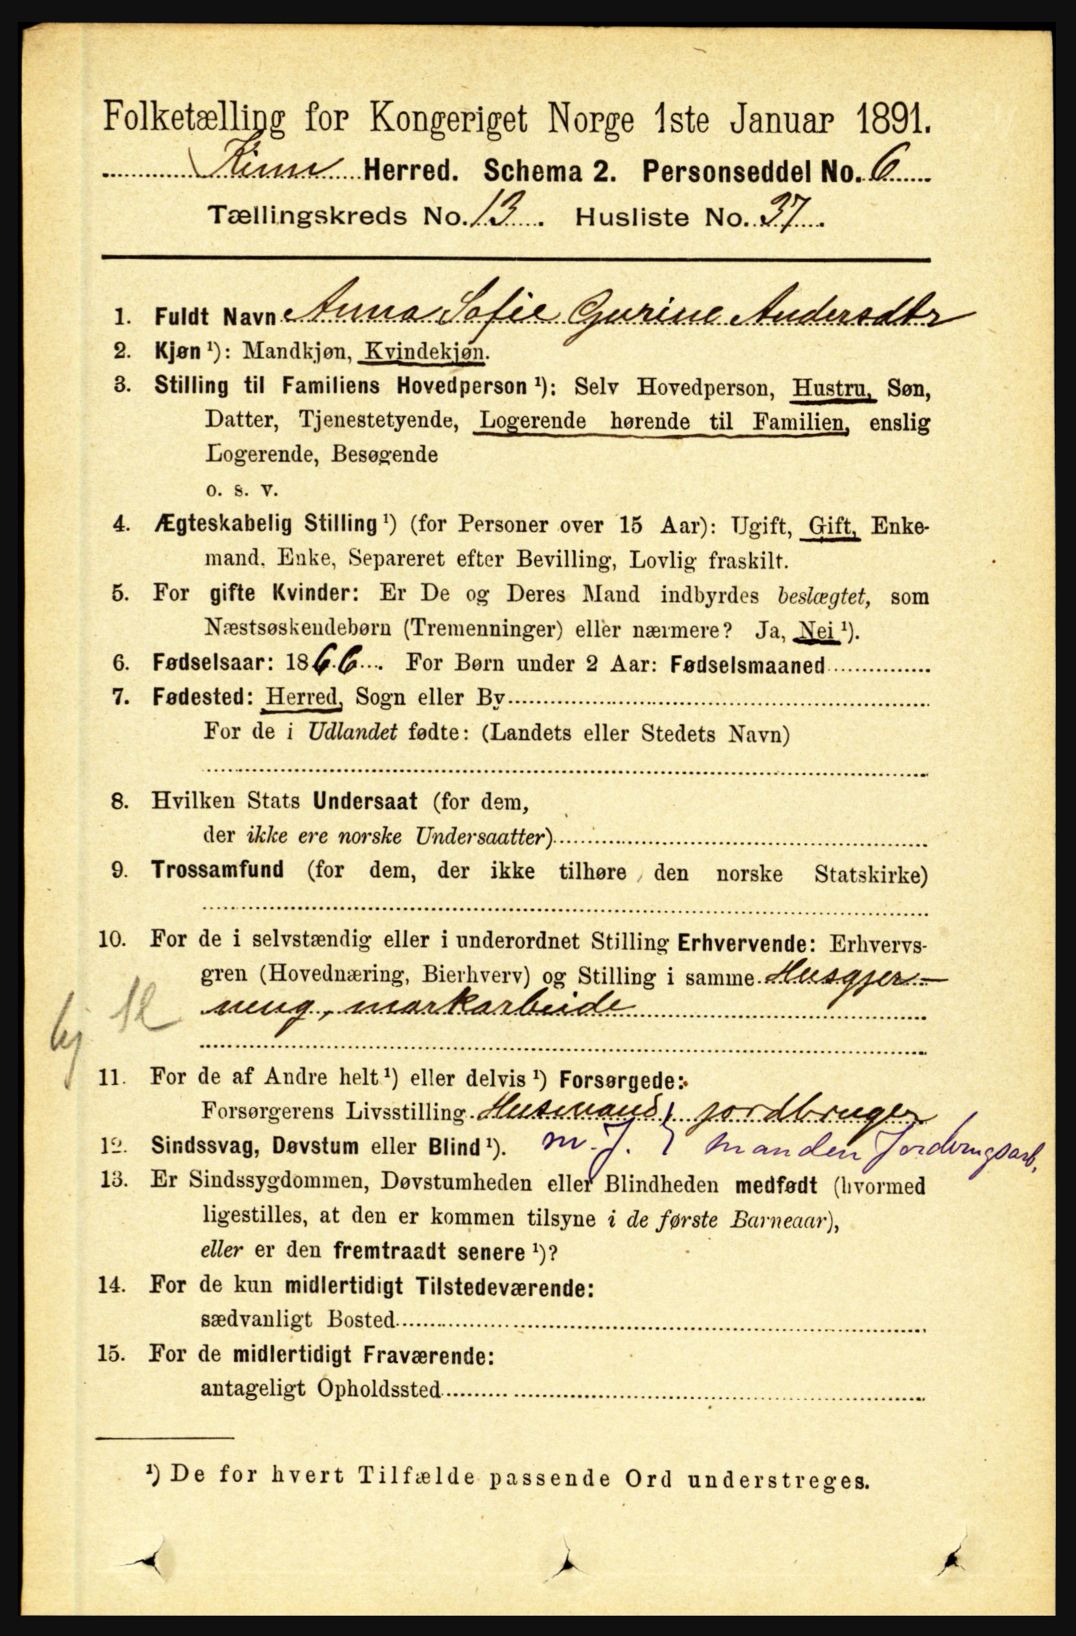 Folketælling for Kongeriget Norge 1ste Januar 1891.
Kinn Herred. Schema 2. Personseddel No. 6
Tællingskreds No. 13. Husliste No. 37.
1. Fuldt Navn Anna Sofie Gurine Andersdtr
2. Kjøn ¹): Mandkjøn, Kvindekjøn.
3. Stilling til Familiens Hovedperson ¹): Selv Hovedperson, Hustru, Søn,
Datter, Tjenestetyende, Logerende hørende til Familien, enslig
Logerende, Besøgende
o. s. v.
4. Ægteskabelig Stilling ¹) (for Personer over 15 Aar): Ugift, Gift, Enke-
mand, Enke, Separeret efter Bevilling, Lovlig fraskilt.
5. For gifte Kvinder: Er De og Deres Mand indbyrdes beslægtet, som
Næstsøskendebørn (Tremenninger) eller nærmere? Ja, Nei ¹).
6. Fødselsaar: 1866. For Børn under 2 Aar: Fødselsmaaned
7. Fødested: Herred, Sogn eller By
For de i Udlandet fødte: (Landets eller Stedets Navn)
8. Hvilken Stats Undersaat (for dem,
der ikke ere norske Undersaatter)
9. Trossamfund (for dem, der ikke tilhøre den norske Statskirke)
10. For de i selvstændig eller i underordnet Stilling Erhvervende: Erhvervs-
gren (Hovednæring, Bierhverv) og Stilling i samme Husgjer-
ning, markarbeide
11. For de af Andre helt ¹) eller delvis ¹) Forsørgede:
Forsørgerens Livsstilling Husmand, jordbruger
12. Sindssvag, Døvstum eller Blind ¹). m. J. Manden Jordbrugsarb.
13. Er Sindssygdommen, Døvstumheden eller Blindheden medfødt (hvormed
ligestilles, at den er kommen tilsyne i de første Barneaar),
eller er den fremtraadt senere ¹)?
14. For de kun midlertidigt Tilstedeværende:
sædvanligt Bosted
15. For de midlertidigt Fraværende:
antageligt Opholdssted
¹) De for hvert Tilfælde passende Ord understreges.